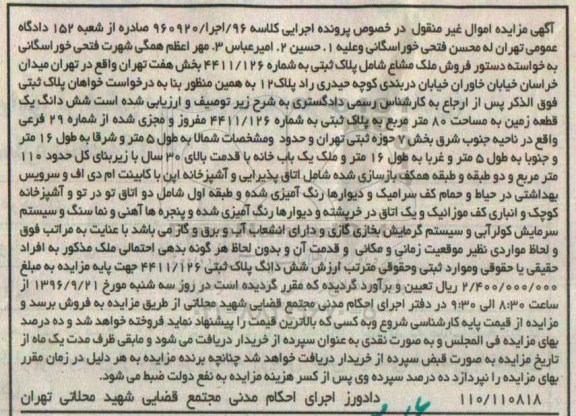 آگهی مزایده اموال غیر منقول در خصوص پرونده اجرایی کلاسه ۹۶/اجرا/۹۶۰۹۲۰ صادره از شعبه ۱۵۲ دادگاه
عمومی تهران له محسن فتحی خوراسگانی وعلیه ۱. حسین ۲. امیرعباس ۳. مهر اعظم همگی شهرت فتحی خوراسگانی
به خواسته دستور فروش ملک مشاع شامل پلاک ثبتی به شماره ۴۴۱۱/۱۲۶ بخش هفت تهران واقع در تهران میدان
خراسان خیابان خاوران خیابان دربندی کوچه حیدری راد پلاک۱۲ به همین منظور بنا به درخواست خواهان پلاک ثبتی
فوق الذکر پس از ارجاع به کارشناس رسمی دادگستری به شرح زیر توصیف و ارزیابی شده است شش دانگ یک
قطعه زمین به مساحت ۸۰ متر مربع به پلاک ثبتی به شماره ۴۴۱۱/۱۲۶ مفروز و مجزی شده از شماره ۲۹ فرعی
واقع در ناحیه جنوب شرق بخش۷ حوزه ثبتی تهران و حدود ومشخصات شمالا به طول ۵ متر و شرقا به طول ۱۶ متر
و جنوبا به طول ۵ متر و غربا به طول ۱۶ متر و ملک یک باب خانه با قدمت بالای ۳۰ سال با زیربنای کل حدود ۱۱۰
متر مربع و دو طبقه و طبقه همکف بازسازی شده شامل اتاق پذیرایی و آشپزخانه اپن با کابینت ام دی اف و سرویس
بهداشتی در حیاط و حمام کف سرامیک و دیوارها رنگ آمیزی شده و طبقه اول شامل دو اتاق تو در تو و آشپزخانه
کوچک و انباری کف موزائیک و یک اتاق در خرپشته و دیوارها رنگ آمیزی شده و پنجره ها آهنی و نما سنگ و سیستم
سرمایش کولرآبی و سیستم گرمایش بخاری گازی و دارای انشعاب آب و برق و گاز می باشد با عنایت به مراتب فوق
و لحاظ مواردی نظیر موقعیت زمانی و مکانی و قدمت آن و بدون لحاظ هر گونه بدهی احتمالی ملک مذکور به افراد
حقیقی یا حقوقی وموارد ثبتی وحقوقی مترتب ارزش شش دانگ پلاک ثبتی ۴۴۱۱/۱۲۶ جهت پایه مزایده به مبلغ
۲/۴۰۰/۰۰۰/۰۰۰ ریال تعیین و برآورد گردیده که مقرر گردیده است در روز سه شنبه مورخ ۱۳۹۶/۹/۲۱ از
ساعت ۸:۳۰ الی ۹:۳۰ در دفتر اجرای احکام مدنی مجتمع قضایی شهید محلاتی از طریق مزایده به فروش برسد و
مزایده از قیمت پایه کارشناسی شروع وبه کسی که بالاترین قیمت را پیشنهاد نماید فروخته خواهد شد و ده درصد
بهای مزایده فی المجلس و به صورت نقدی به عنوان سپرده از خریدار دریافت می شود و مابقی ظرف مدت یک ماه از
تاریخ مزایده به صورت قبض سپرده از خریدار دریافت خواهد شد چنانچه برنده مزایده به هر دلیل در زمان مقرر
بهای مزایده را نپردازد ده درصد سپرده وی پس از کسر هزینه مزایده به نفع دولت ضبط می شود.
۱۱۰/۱۱۰۸۱۸ دادورز اجرای احکام مدنی مجتمع قضایی شهید محلاتی تهران